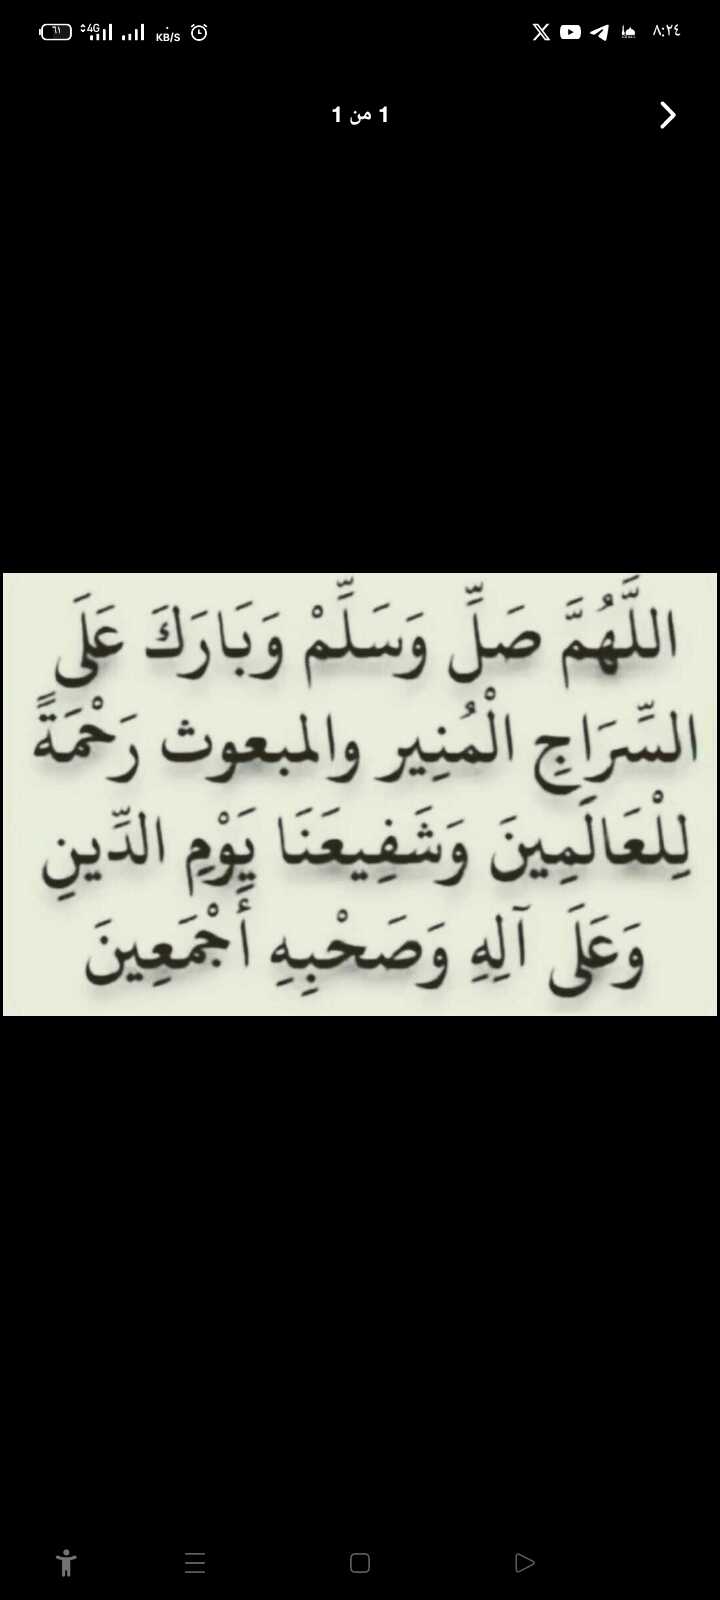 ٨:٢٤
٦١
4G
٠ KB/S
1 من 1
اللَّهُمَّ صَلِّ وَسَلِّمْ وَبَارَكَ عَلَى
السِّرَاجِ الْمُنِير والمبعوث رَحْمَةً
لِلْعَالَمِينَ وَشَفِيعَنَا يَوْمِ الدِّينِ
وَعَلَى آلِهِ وَصَحْبِهِ أَجْمَعِينَ